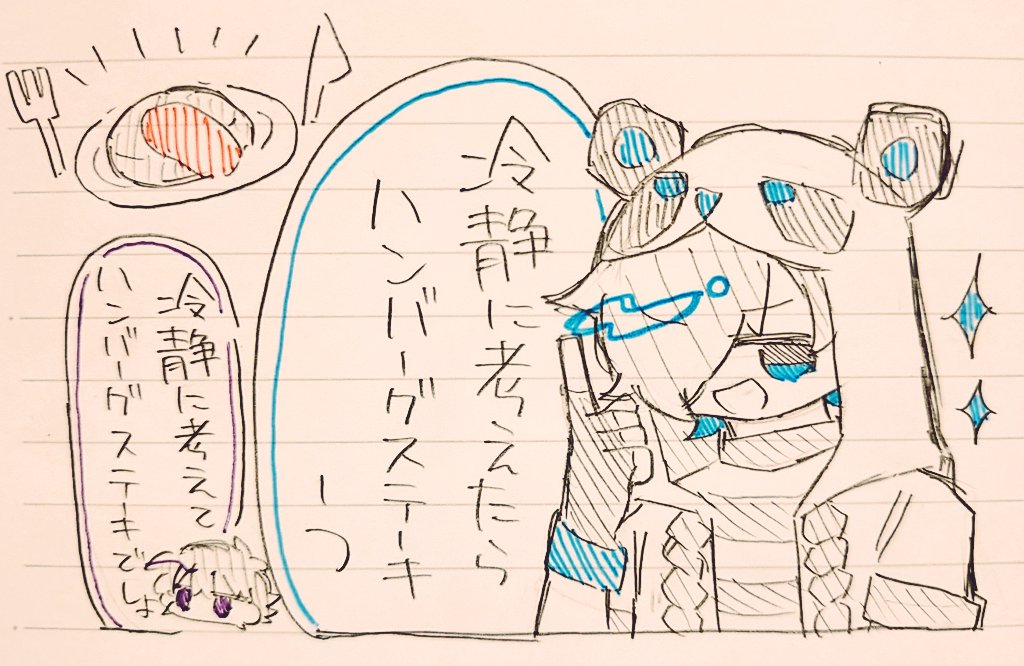 冷静に考えたら
ハンバーグステーキ
一つ
冷静に考えて
ハンバーグステーキでしょ